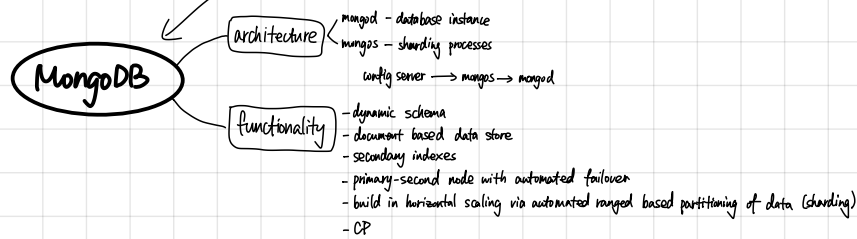 MongoDB
architecture
mongod - database instance
mongos - sharding processes
config server → mongos → mongod
functionality
- dynamic schema
- document based data store
- secondary indexes
- primary-second node with automated failover
- build in horizontal scaling via automated ranged based partitioning of data (sharding)
- CP